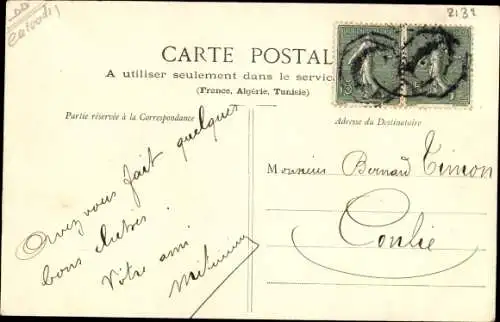 2132
CARTE POSTAL
A utiliser seulement dans le servic
(France, Algérie, Tunisie)
Partie réservée à la Correspondance
Adresse du Destinataire
Avez vous fait quelques
bons
Vôtre ami
Monsieur Bernard Timon
Conlie